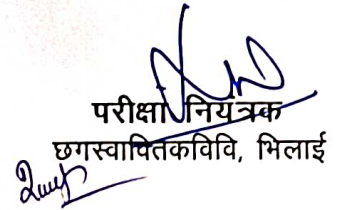 परीक्षा नियंत्रक
छगस्वावितकविवि, भिलाई